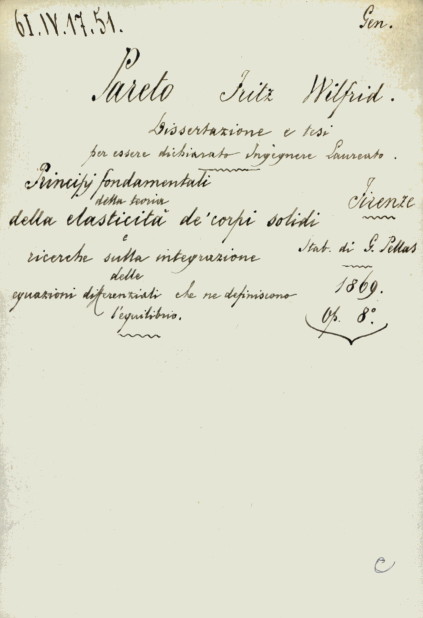 61.IV.17.51.
Gen.
Pareto Fritz Wilfrid.
Dissertazione e tesi
per essere dichiarato Ingegnere Laureato.
Principj fondamentali
della teoria
della elasticità de' corpi solidi
e
ricerche sulla integrazione
delle
equazioni differenziali che ne definiscono
l'equilibrio.
Firenze
Stab. di G. Pellas
1869.
Op. 8º.
C